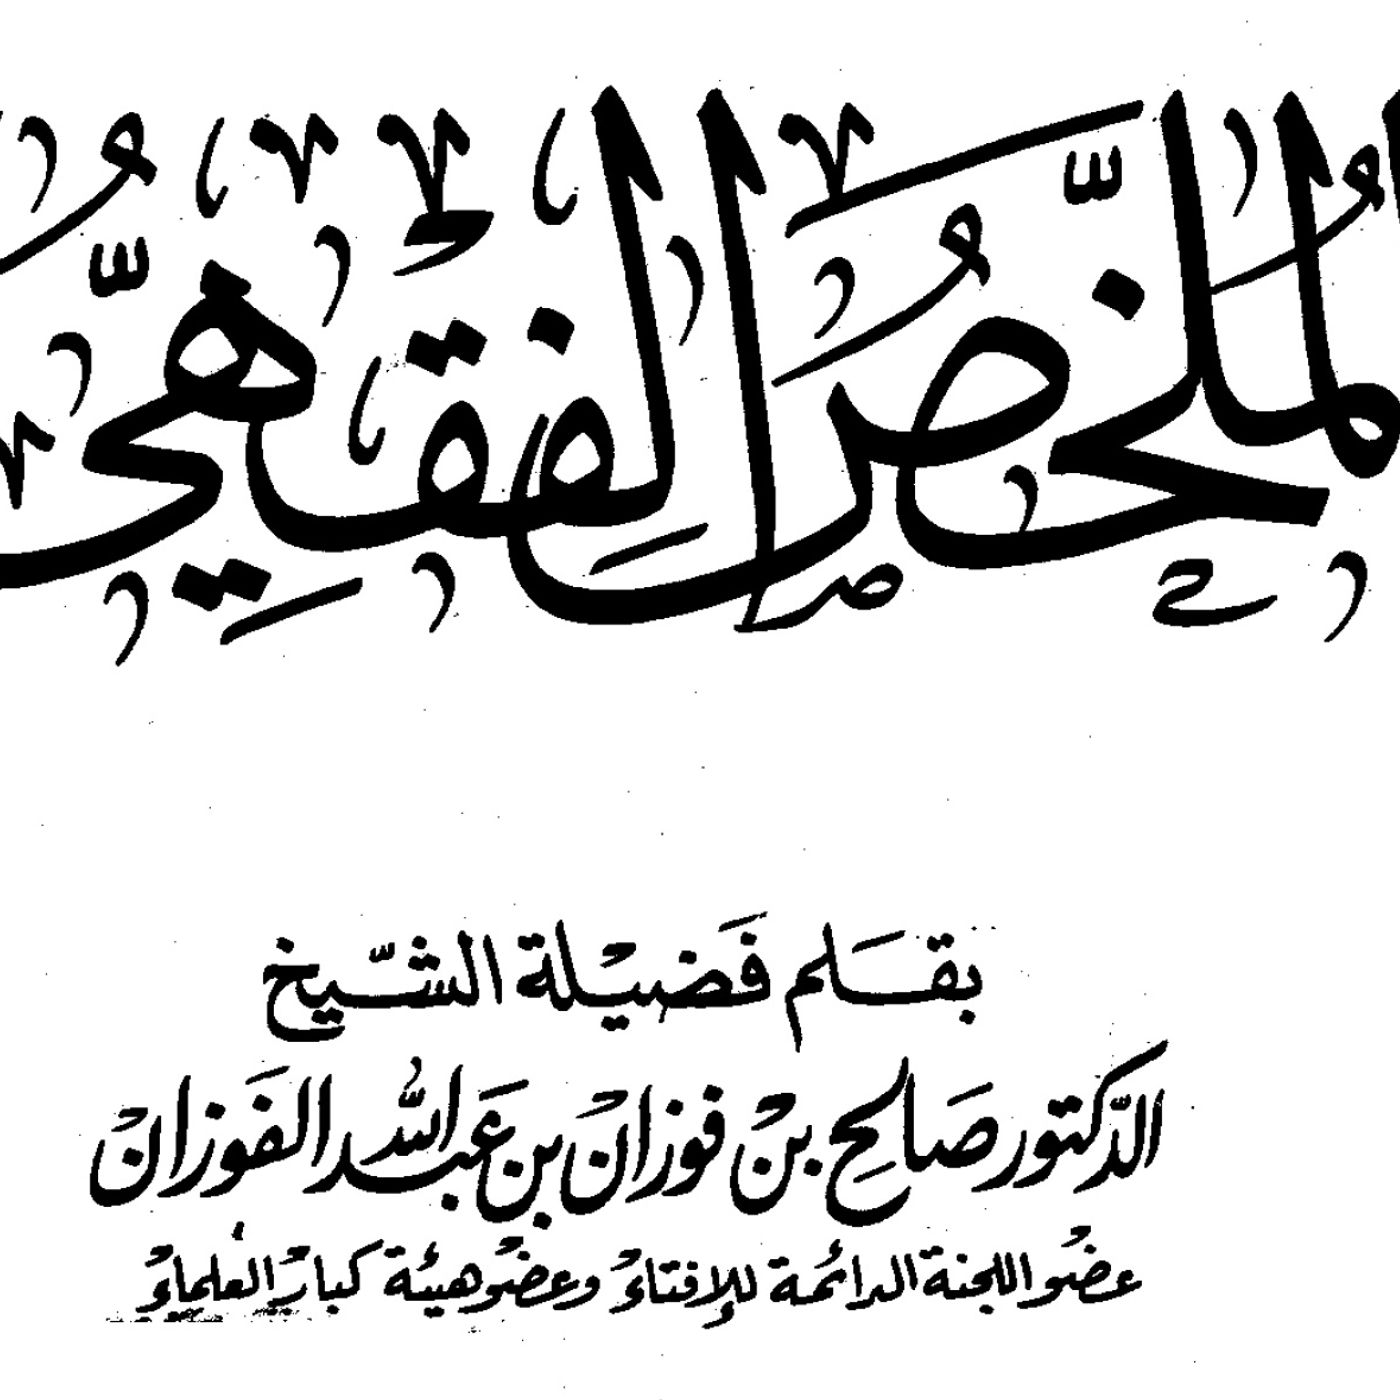 الملخص الفقهي
بقلم فضيلة الشيخ
الدكتور صالح بن فوزان بن عبد الله الفوزان
عضو اللجنة الدائمة للإفتاء وعضو هيئة كبار العلماء